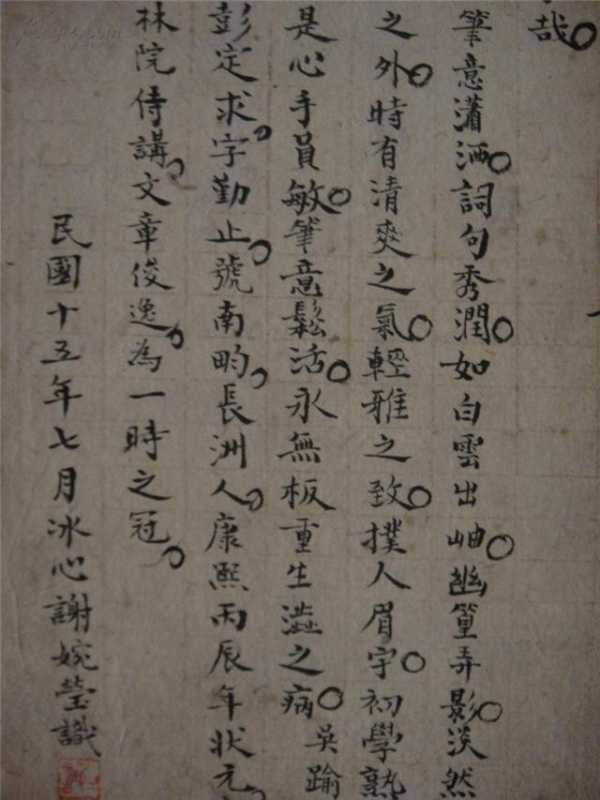 哉
筆意瀟洒詞句秀潤如白雲出岫幽篁弄影淡然
之外時有清爽之氣輕雅之致撲人眉宇初學熟
是心手員敏筆意鬆活永無板重生澁之病 吳踰
彭定求字勤止號南畇長洲人康熙丙辰年狀元
林院侍講文章俊逸為一時之冠
民國十五年七月冰心謝婉瑩識